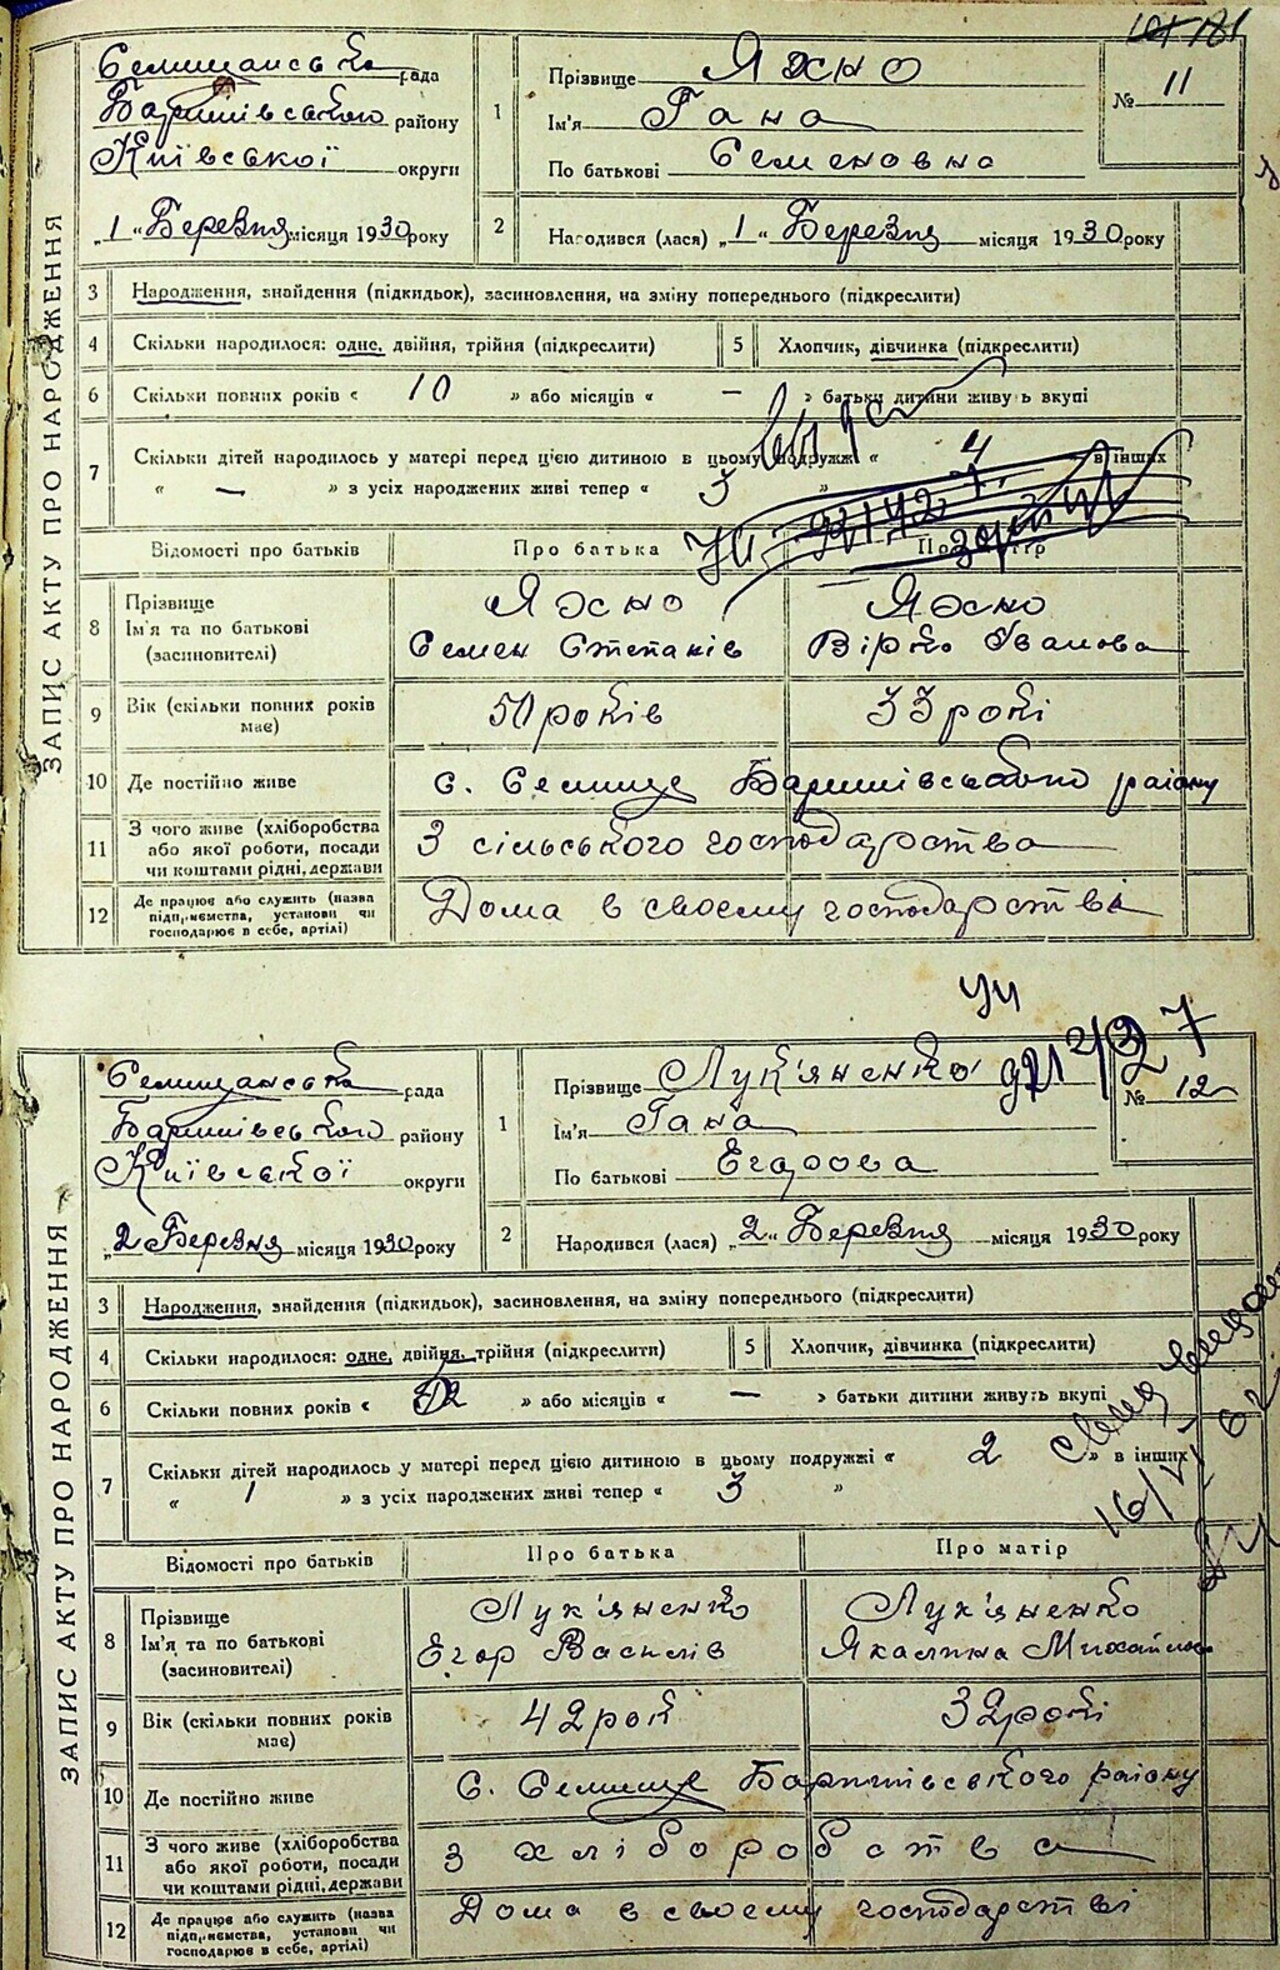 181
ЗАПИС АКТУ ПРО НАРОДЖЕННЯ
Селищанська рада
Баришівського району
Київської округи
„1“ Березня місяця 1930 року
1
Прізвище Яхно
Ім'я Гана
По батькові Семеновна
№ 11
2
Народився (лася) „1“ Березня місяця 1930 року
3 Народження, знайдення (підкидьок), засиновлення, на зміну попереднього (підкреслити)
4 Скільки народилося: одне, двійня, трійня (підкреслити)
5 Хлопчик, дівчинка (підкреслити)
6 Скільки повних років « 10 » або місяців « — » батьки дитини живуть вкупі
7 Скільки дітей народилось у матері перед цією дитиною в цьому подружжі « 4 в інших
« — » з усіх народжених живі тепер « 3 »
Відомості про батьків Про батька Про матір
8 Прізвище
Ім'я та по батькові
(засиновителі)
Яхно
Семен Степанів
Яхно
Вірка Іванова
9 Вік (скільки повних років має) 50 років 33 рокі
10 Де постійно живе с. Селище Баришівського району
11 З чого живе (хліборобства
або якої роботи, посади
чи коштами рідні, держави
З сільського господарства
12 Де працює або служить (назва
підприємства, установи чи
господарює в себе, артілі)
Дома в своему господарстві
ЗАПИС АКТУ ПРО НАРОДЖЕННЯ
Селищанська рада
Баришівського району
Київської округи
„2 Березня місяця 1930 року
1
Прізвище Лук'яненко
Ім'я Гана
По батькові Егорова
№ 12
2
Народився (лася) „2“ Березня місяця 1930 року
3 Народження, знайдення (підкидьок), засиновлення, на зміну попереднього (підкреслити)
4 Скільки народилося: одне, двійня, трійня (підкреслити)
5 Хлопчик, дівчинка (підкреслити)
6 Скільки повних років « » або місяців « — » батьки дитини живуть вкупі
7 Скільки дітей народилось у матері перед цією дитиною в цьому подружжі « 2 » в інших
« 1 » з усіх народжених живі тепер « 3 »
Відомості про батьків Про батька Про матір
8 Прізвище
Ім'я та по батькові
(засиновителі)
Лук'яненко
Егор Василів
Лук'яненко
Михайлова
9 Вік (скільки повних років має) 42 рок 32 рокі
10 Де постійно живе с. Селище Баришівського району
11 З чого живе (хліборобства
або якої роботи, посади
чи коштами рідні, держави
З хліборобства
12 Де працює або служить (назва
підприємства, установи чи
господарює в себе, артілі)
Дома в своему господарстві